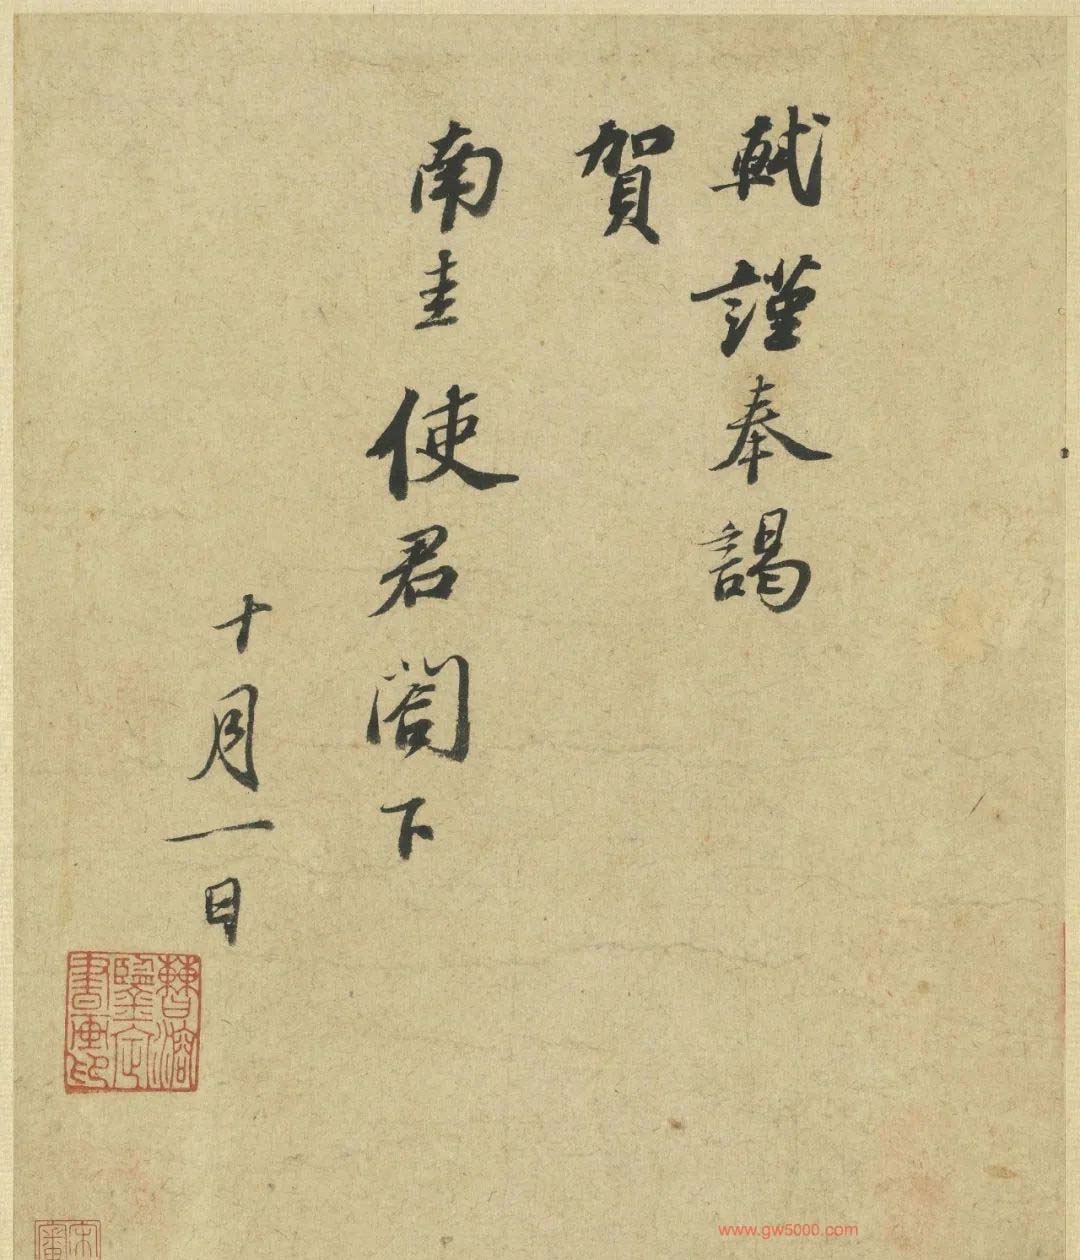 軾謹奉謁
賀
南圭使君閤下
十月一日
曹溶
鑒定
書画印
www.gw5000.com